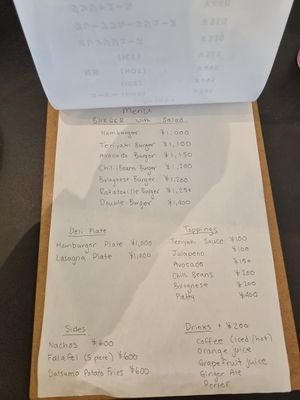 Menu
BURGER with Salad
Hamburger ¥1,000
Teriyaki Burger ¥1,100
Avocado Burger ¥1,150
Chili Beans Burger ¥1,200
Bolognese Burger ¥1,200
Ratatouille Burger ¥1,250
Double Burger ¥1,400
Deli Plate
Hamburger Plate ¥1,000
Lasagna Plate ¥1,000
Toppings
Teriyaki Sauce ¥100
Jalapeno ¥100
Avocado ¥150
Chili Beans ¥200
Bolognese ¥200
Patty ¥400
Sides
Nachos ¥600
Falafel (5 piece) ¥600
Satsuma Potato Fries ¥600
Drinks + ¥200
Coffee (iced/hot)
Orange juice
Grapefruit juice
Ginger Ale
Perier